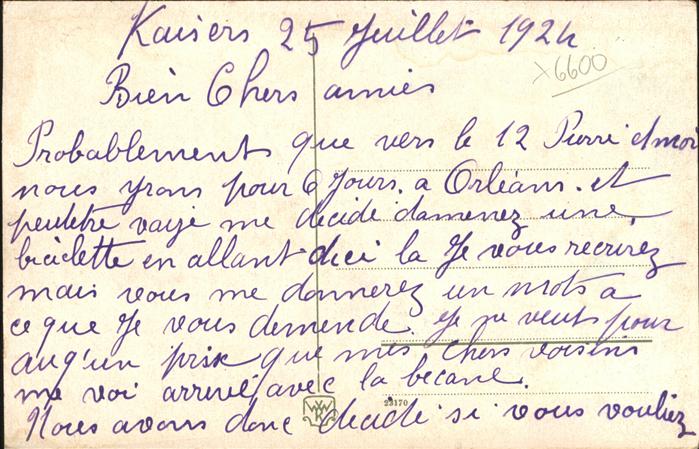 Kaisers 25 Juillet 1924
x6600
Bien Chers amies
Probablement que vers le 12 Pierre et moi
nous yrons pour 6 Jours. a Orléans. et
peutetre vaije me décidé damenez une
biciclette en allant dici la Je vous recrirez
mais vous me donnerez un mots a
ce que Je vous demende. Je ne veut pour
auq'un prix que mes chers voisins
me voi arrivé avec la becane.
23170
Nous avons donc décidé si vous vouliez